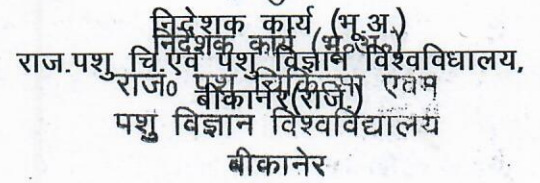 निदेशक कार्य (भू.अ.)
निदेशक कार्य (भू०अ०)
राज.पशु चि.एवं पशु विज्ञान विश्वविधालय,
राज० पशु चिकित्सा एवम
बीकानेर(राज.)
पशु विज्ञान विश्वविद्यालय
बीकानेर